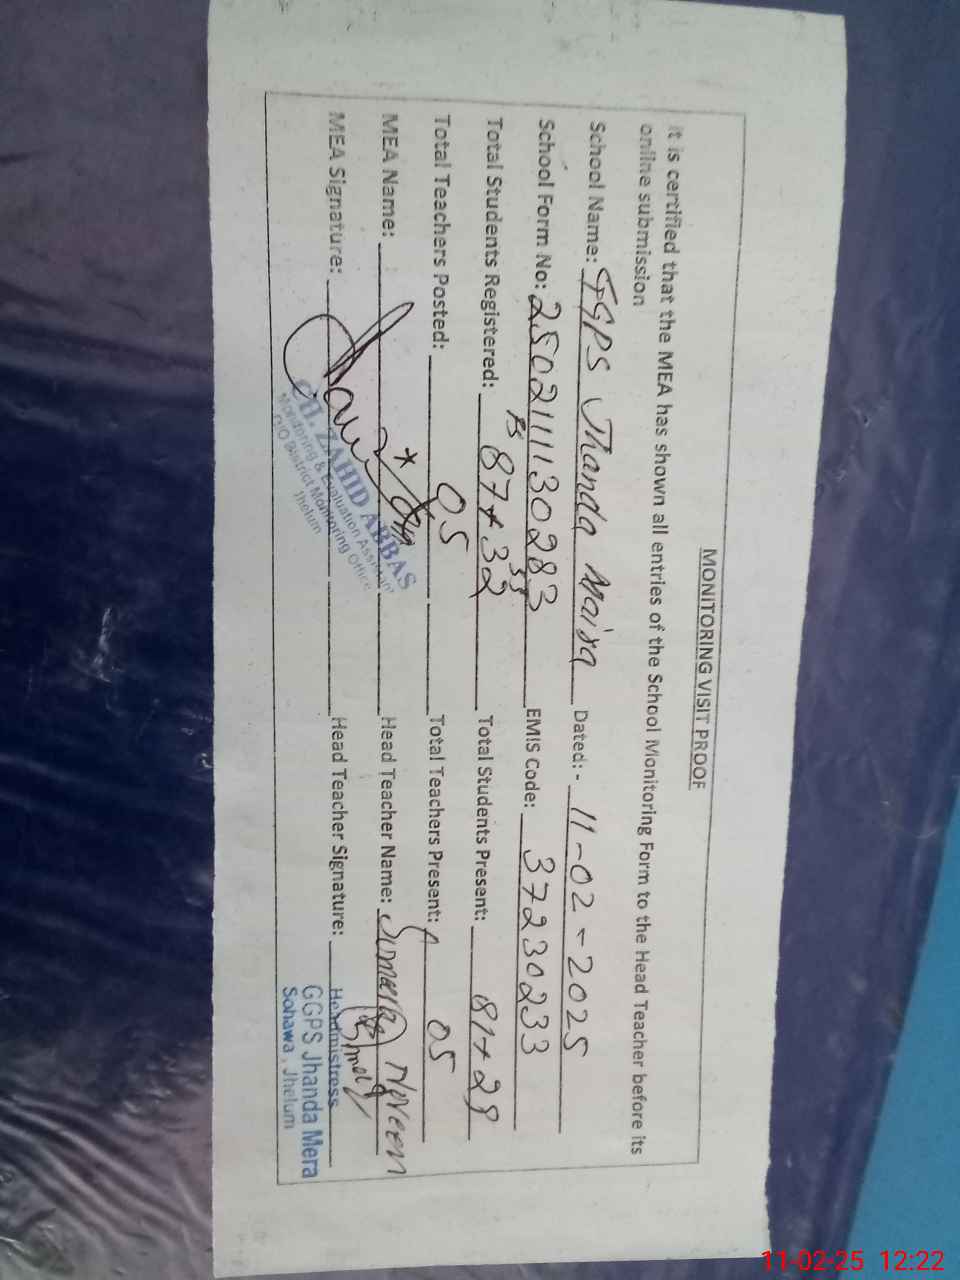 MONITORING VISIT PROOF
It is certified that the MEA has shown all entries of the School Monitoring Form to the Head Teacher before its
online submission
School Name: GGPS Jhanda Maira Dated: - 11-02-2025
School Form No: 2502111130283 EMIS Code: 37230233
33
Total Students Registered: 87+32 Total Students Present: 81+29
Total Teachers Posted: 05 Total Teachers Present: 05
MEA Name: Head Teacher Name: Sumaira Noreen
MEA Signature: Head Teacher Signature:
CH. ZAHID ABBAS
Monitoring & Evaluation Assistant
O/O District Monitoring Office
Jhelum
Headmistress
GGPS Jhanda Mera
Sohawa, Jhelum
11-02-25 12:22